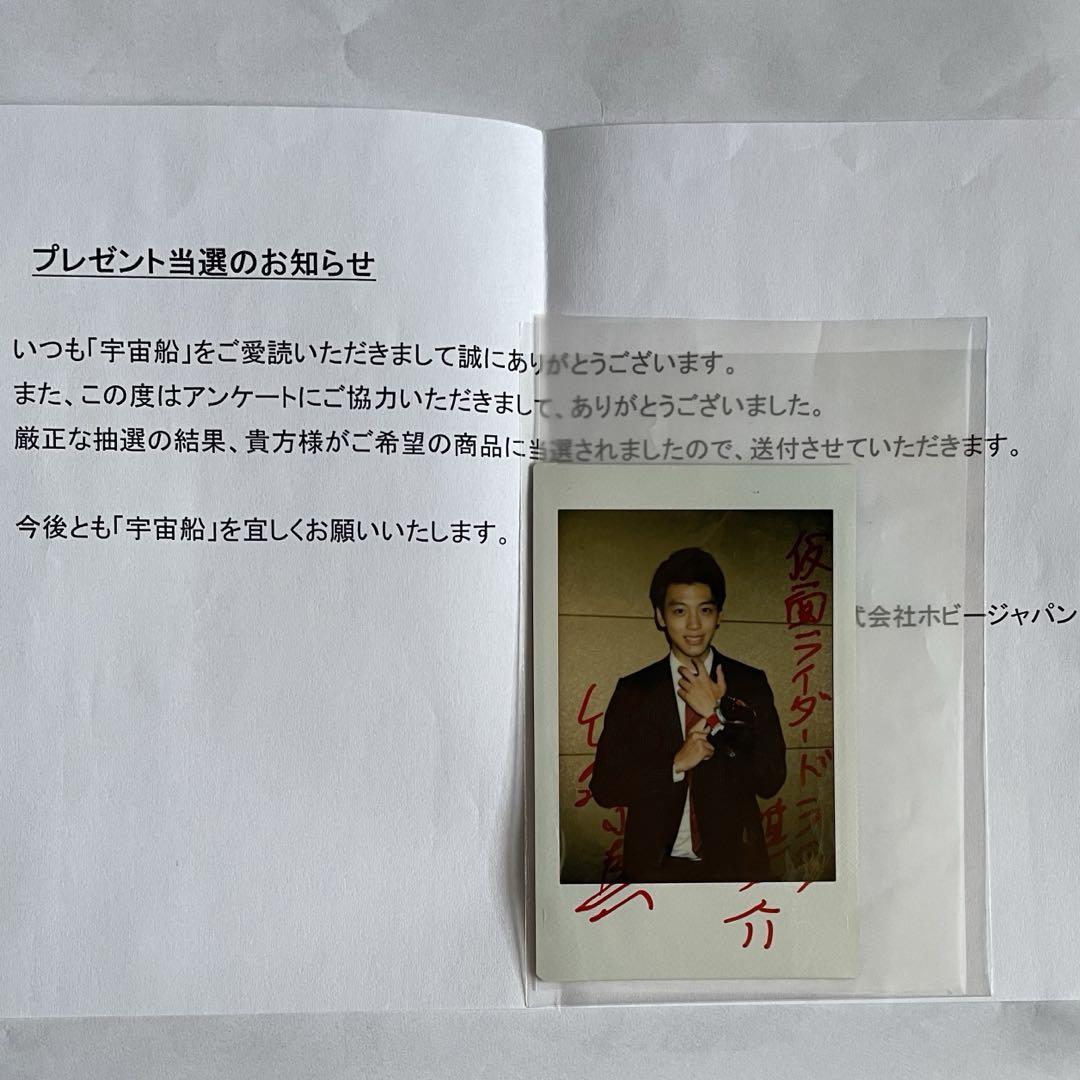 プレゼント当選のお知らせ
いつも「宇宙船」をご愛読いただきまして誠にありがとうございます。
また、この度はアンケートにご協力いただきまして、ありがとうございました。
厳正な抽選の結果、貴方様がご希望の商品に当選されましたので、送付させていただきます。
今後とも「宇宙船」を宜しくお願いいたします。
式会社ホビージャパン
仮面ライダードライブ